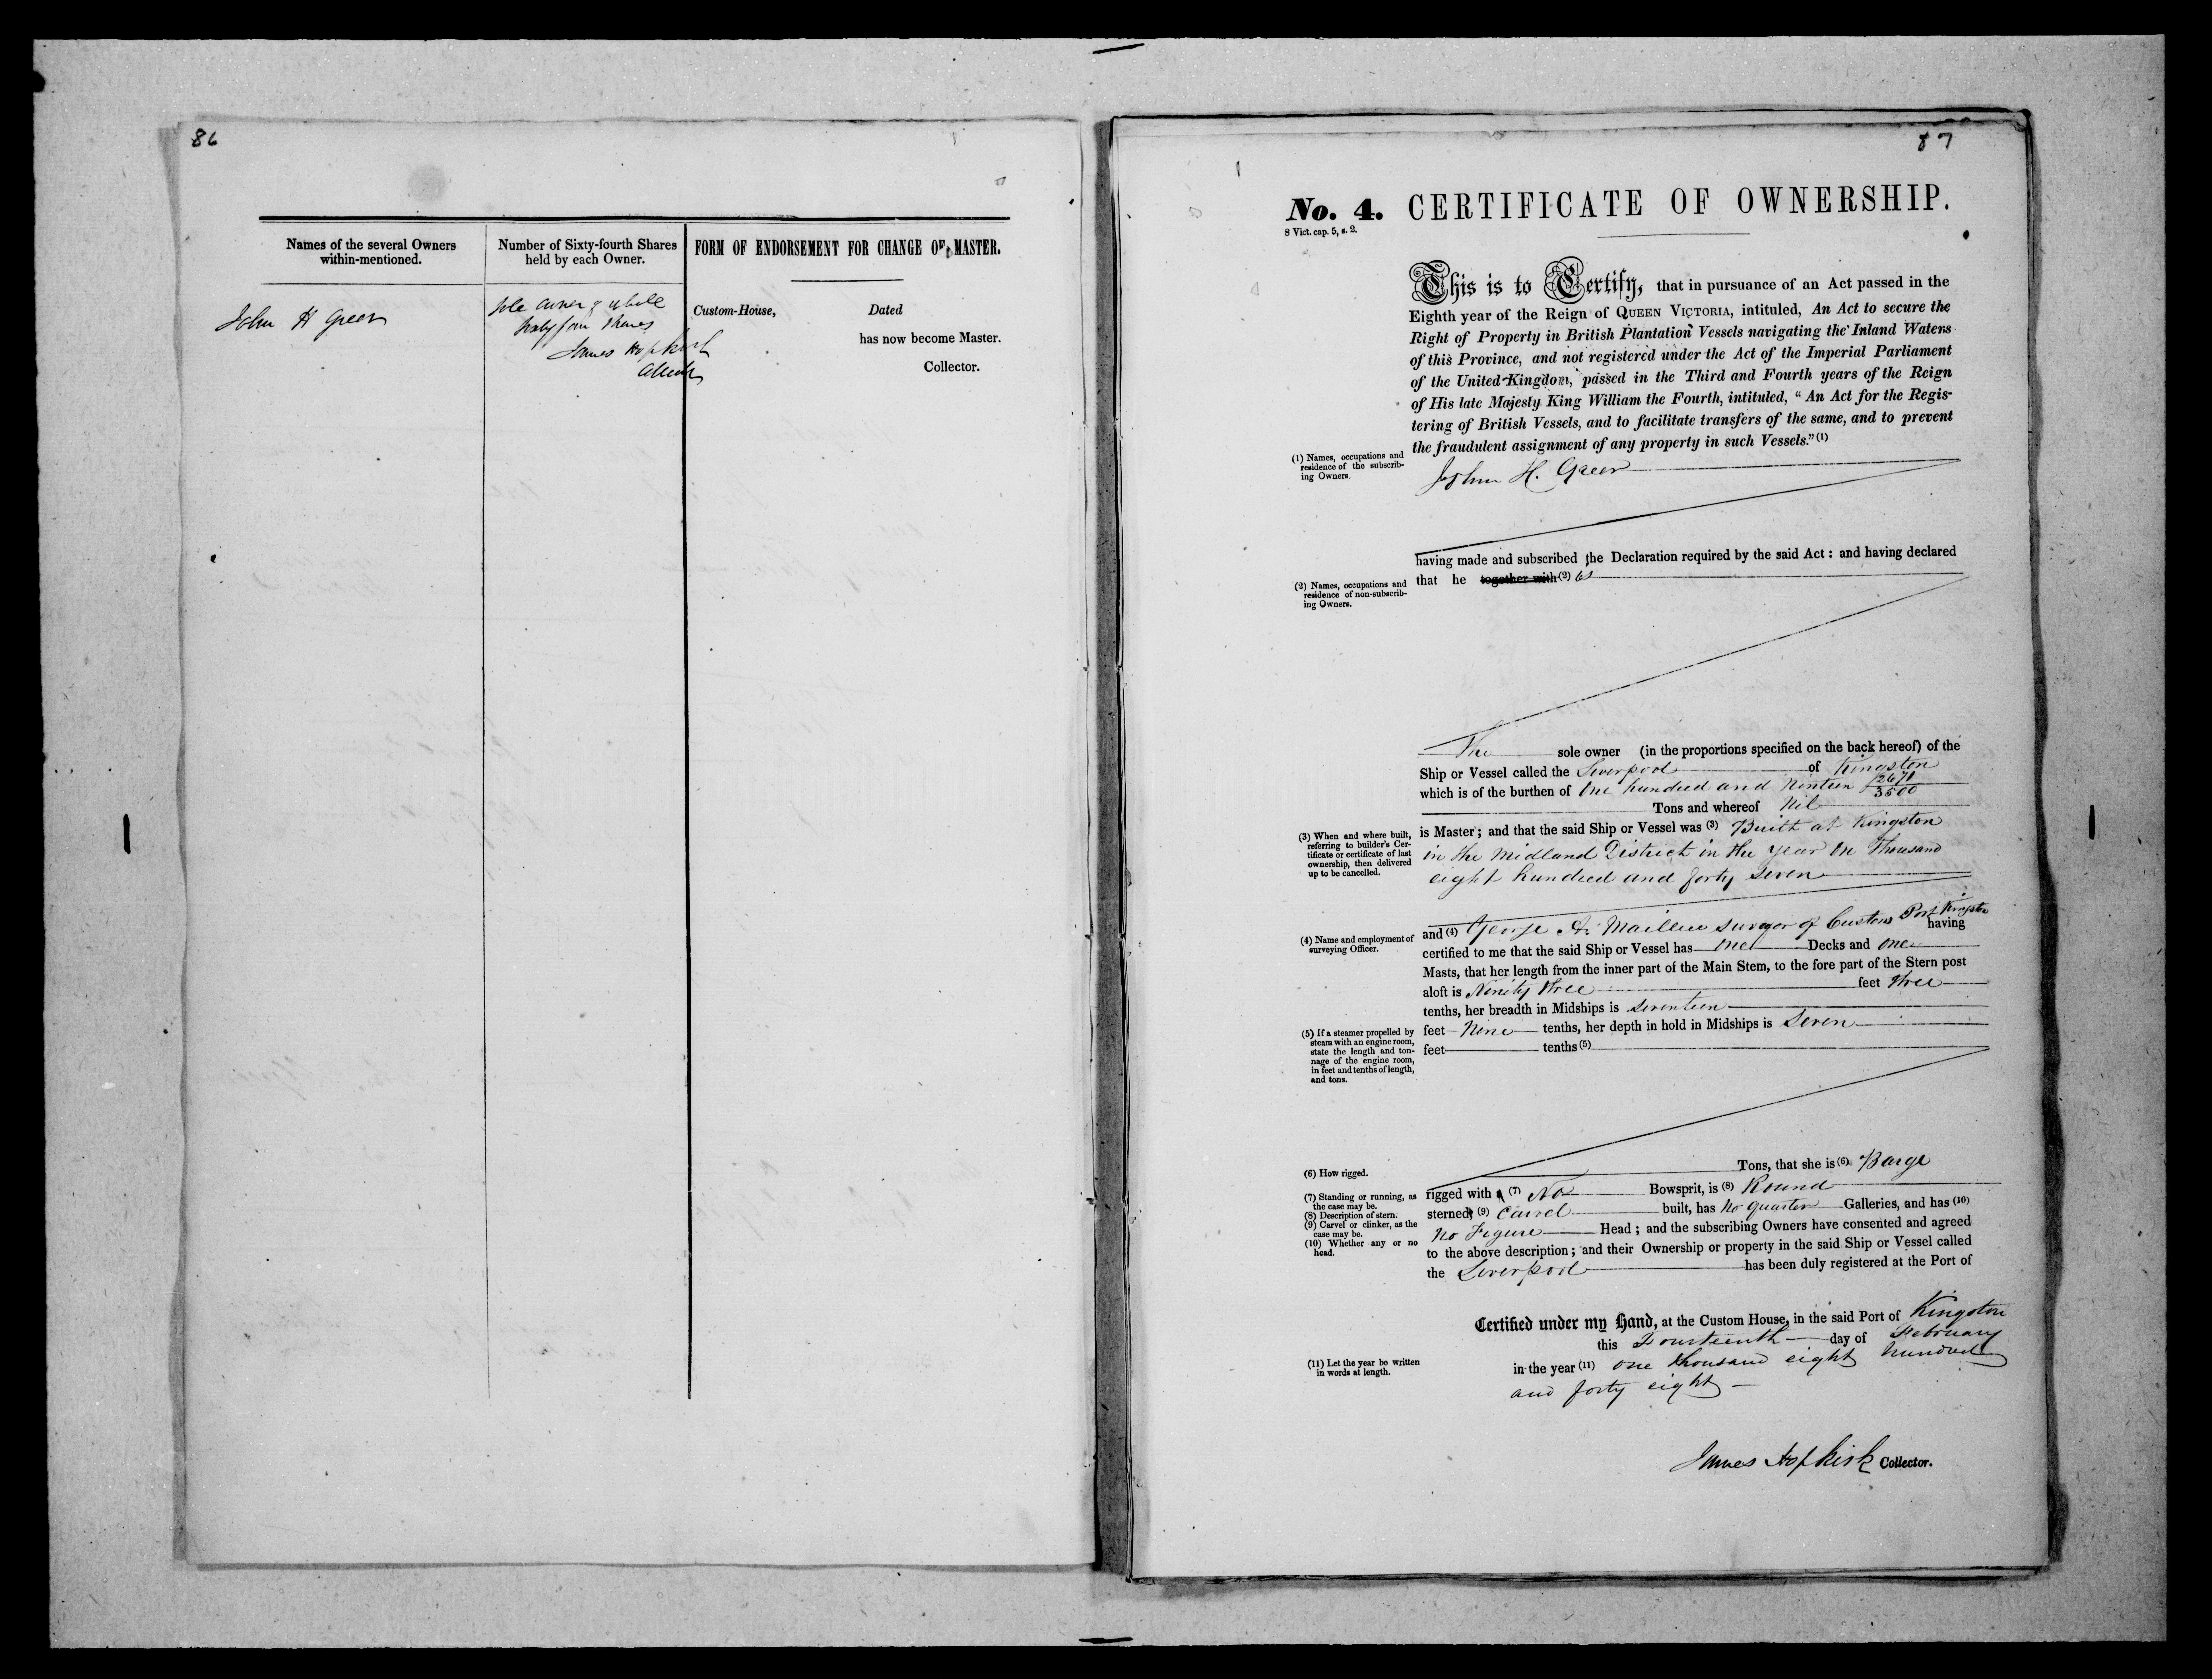 86
Names of the several Owners
within-mentioned.
Number of Sixty-fourth Shares
held by each Owner.
FORM OF ENDORSEMENT FOR CHANGE OF MASTER.
John H Greer
Sole owner of whole
Sixty four Shares
James Hopkirk
Collector
Custom-House, Dated
has now become Master.
Collector.
87
No. 4. CERTIFICATE OF OWNERSHIP.
8 Vict. cap. 5, s. 2.
This is to Certify, that in pursuance of an Act passed in the
Eighth year of the Reign of QUEEN VICTORIA, intituled, An Act to secure the
Right of Property in British Plantation Vessels navigating the Inland Waters
of this Province, and not registered under the Act of the Imperial Parliament
of the United Kingdom, passed in the Third and Fourth years of the Reign
of His late Majesty King William the Fourth, intituled, "An Act for the Regis-
tering of British Vessels, and to facilitate transfers of the same, and to prevent
the fraudulent assignment of any property in such Vessels." (1)
(1) Names, occupations and
residence of the subscrib-
ing Owners.
John H. Greer
having made and subscribed the Declaration required by the said Act: and having declared
that he together with (2) is
(2) Names, occupations and
residence of non-subscrib-
ing Owners.
The sole owner (in the proportions specified on the back hereof) of the
Ship or Vessel called the Liverpool of Kingston
which is of the burthen of One hundred and Ninteen 2671/3500
Tons and whereof Nil
(3) When and where built,
referring to builder's Cer-
tificate or certificate of last
ownership, then delivered
up to be cancelled.
is Master; and that the said Ship or Vessel was (3) Built at Kingston
in the Midland District in the year One Thousand
eight hundred and forty seven
(4) Name and employment of
surveying Officer.
and (4) George A. Surveyor of Customs Port Kingston
having
certified to me that the said Ship or Vessel has One Decks and One
Masts, that her length from the inner part of the Main Stem, to the fore part of the Stern post
aloft is Ninety three feet three
tenths, her breadth in Midships is Seventeen
(5) If a steamer propelled by
steam with an engine room,
state the length and ton-
nage of the engine room,
in feet and tenths of length,
and tons.
feet Nine tenths, her depth in hold in Midships is Seven
feet tenths (5)
(6) How rigged.
Tons, that she is (6) Barge
(7) Standing or running, as
the case may be.
(8) Description of stern.
(9) Carvel or clinker, as the
case may be.
(10) Whether any or no
head.
rigged with a (7) No Bowsprit, is (8) Round
sterned, (9) Carvel built, has no quarter Galleries, and has (10)
No Figure Head; and the subscribing Owners have consented and agreed
to the above description; and their Ownership or property in the said Ship or Vessel called
the Liverpool has been duly registered at the Port of
Certified under my Hand, at the Custom House, in the said Port of Kingston
this Fourteenth day of February
(11) Let the year be written
in words at length.
in the year (11) one thousand eight hundred
and forty eight
James Hopkirk Collector.